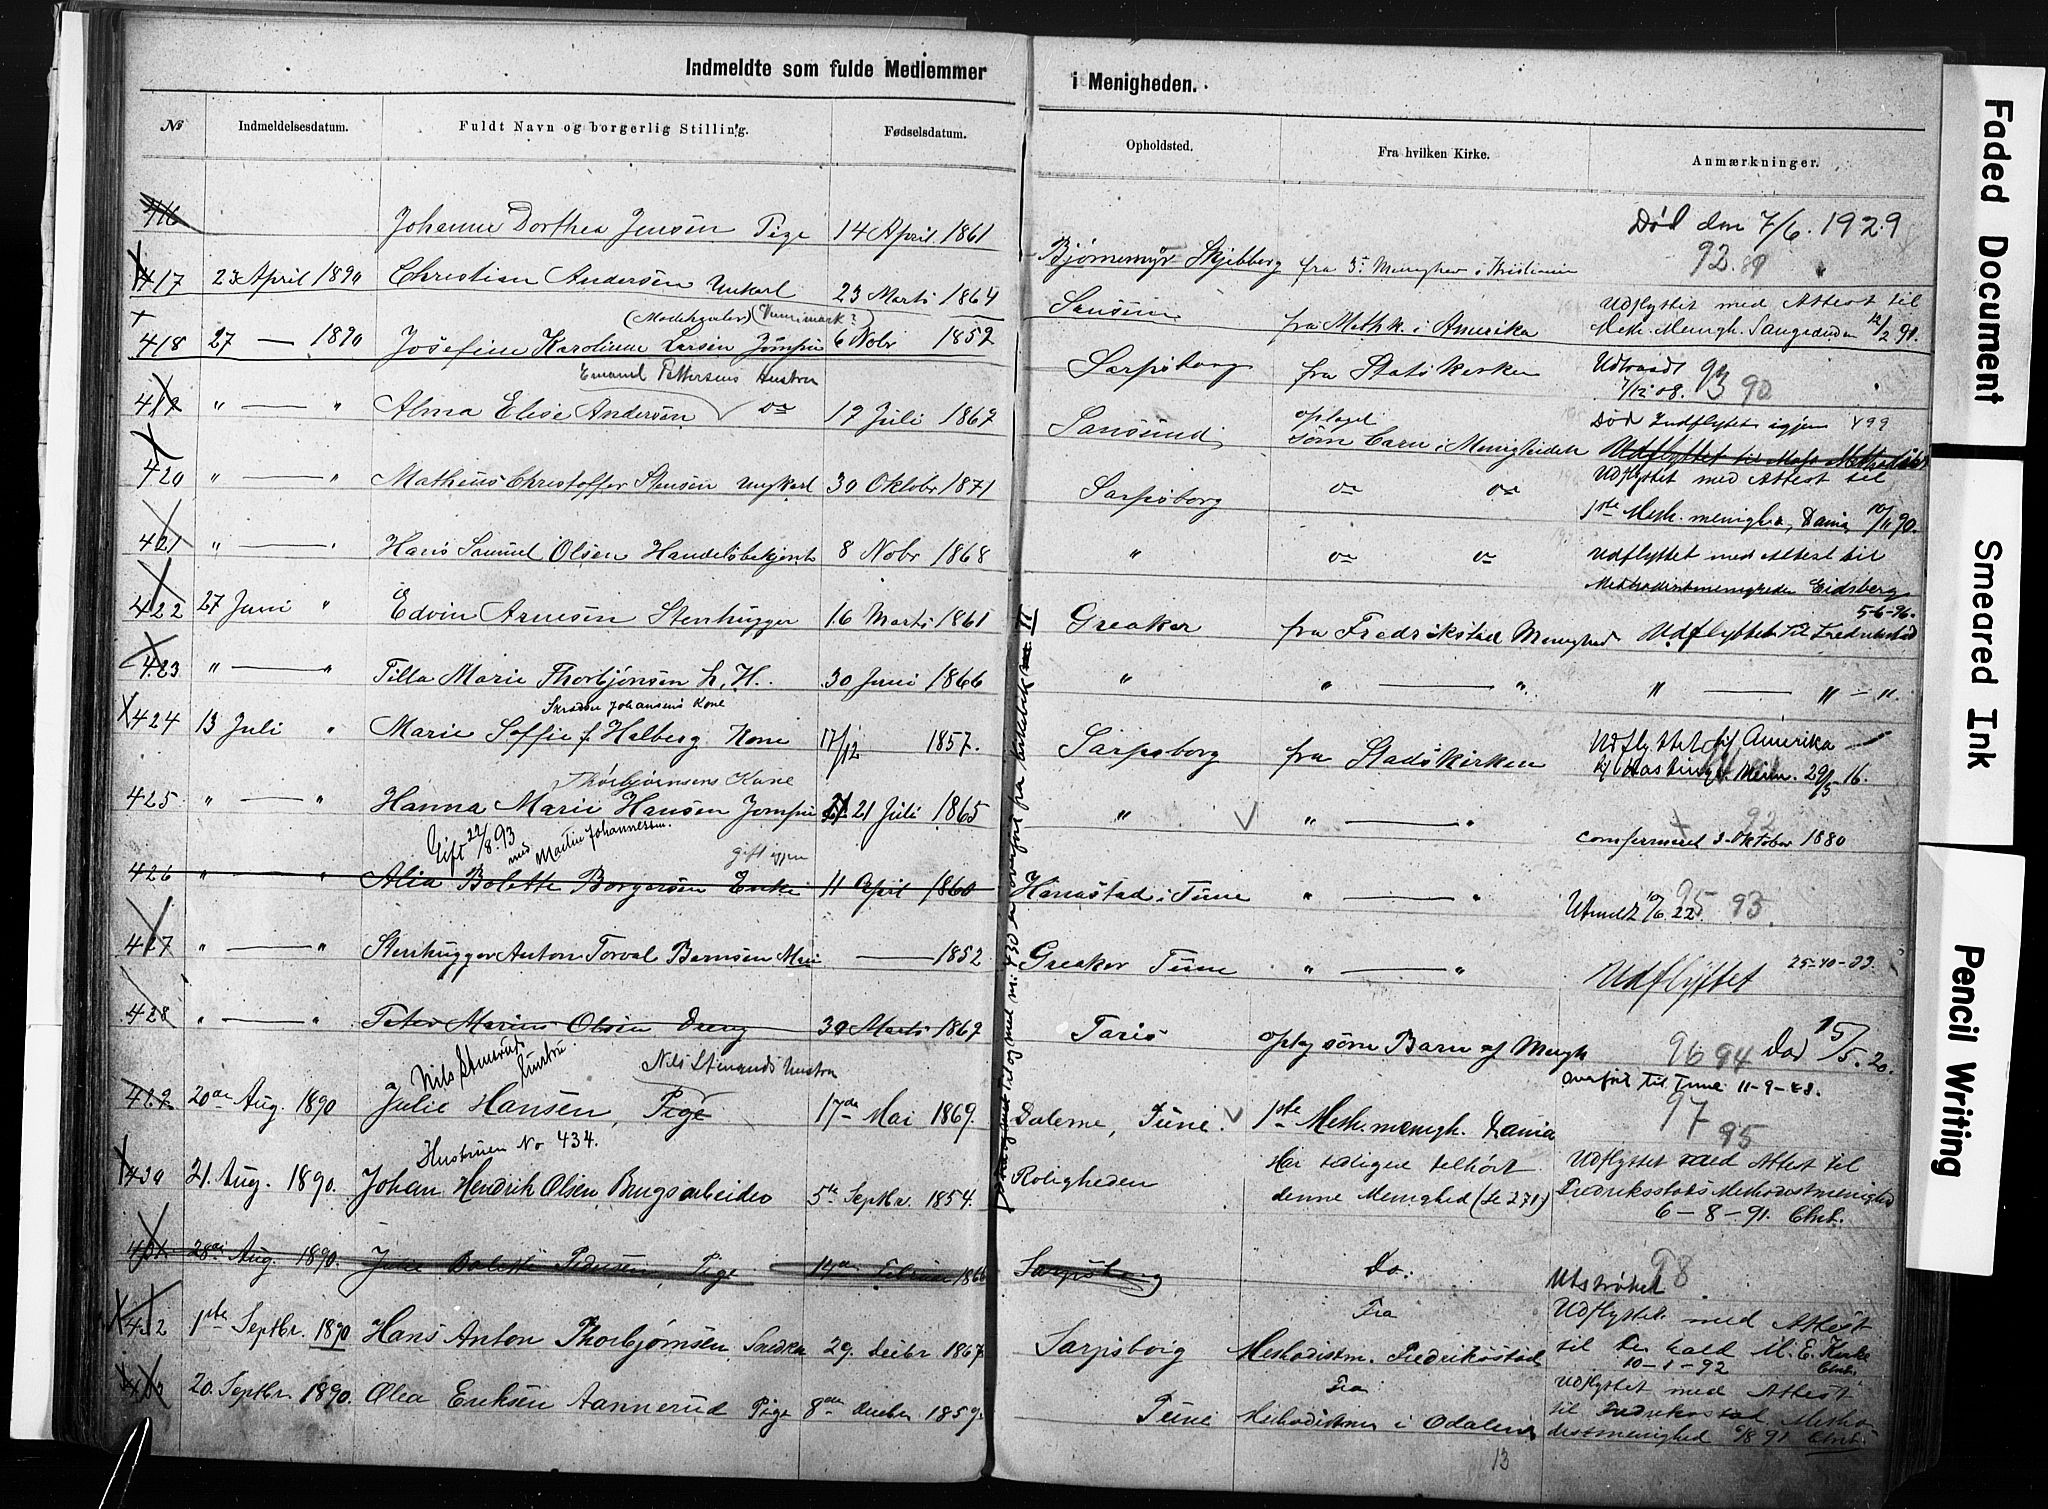 Indmeldte som fulde Medlemmer i Menigheden.
№ Indmeldelsesdatum. Fuldt Navn og borgerlig Stilling. Fødselsdatum. Opholdsted. Fra hvilken Kirke. Anmærkninger.
Død den 7/6. 1929
416 Johanne Dorthea Jensen Pige 14 April 1861
Bjørnemyr Skjebberg fra 3. Menighed i Kristiania 92 89
417 23 April 1890 Christian Andersen Unkarl 23 Marts 1864
Sansund fra Meth. K. i Amerika Udflyttet med Attest til
Meth. Menigh. 12/2 91.
418 27 — 1890 Josefine Karoline Larsen Jomfru 6 Nobr 1852
Sarpsborg fra Statskirken Udtraadt 7/12 08. 93 90
Emanuel Pettersens Hustru
419 " — " Alma Elise Andersen do 17 Juli 1867
Sansund optaget som Barn i Menigheden Død Indflyttet igjen 499
Udflyttet til Moss Methodist
420 " — " Matheus Christoffer Stensen Ungkarl 30 Oktobr 1871
Sarpsborg do do Udflyttet med Attest til
1ste Meth. menighed, Dania 10/11 90.
421 " — " Hans Samuel Olsen Handelsbetjent 8 Nobr 1868
" do do Udflyttet med Attest til
Methodistmenigheden Eidsberg
5-6-96.
422 27 Juni " Edvin Arnesen Stenhugger 16 Marts 1861
Greaker fra Fredrikstad Menighed Udflyttet til Fredrikstad
423 " — " Tilla Marie Thorbjønsen h. H. 30 Juni 1866
" " — " " — " — "
Johansens Kone
424 13 Juli " Marie Soffie f. Halberg Kone 17/12 1857.
Sarpsborg fra Stadskirken Udflyttet til Amerika
Hastings Minn. 29/5-16.
Thorbjørnsens Kone
425 " — " Hanna Marie Hansen Jomfru 21 Juli 1865
" " — " 92
comfermeret 3 Oktober 1880
Gift 22/8.93 med Martin Johannessen.
gift igjen
426 " — " Alia Bolette Borgersen Enke 11 April 1860
Hanastad i Tune " — " Utmeldt 10/6 22. 95 93.
427 " — " Stenhugger Anton Torval Bernsen — 1852
Greaker Tune " — " Udflyttet
428 " — " Peter Marius Olsen Dreng 30 Marts 1867
Paris optag som Barn af Menigh 96 94 Død 15/5. 20.
overført til Tune 11-9-48.
Nils Stenruds Hustru.
Nils Stenruds Hustru
429 20de Aug. 1890 Julie Hansen, Pige 17de Mai 1869.
Dalerne, Tune. 1ste Meth. menigh. Dania 97 95
Hustruen No 434.
430 21. Aug. 1890. Johan Hendrik Olsen, Brugsarbeider 5te Septbr. 1854.
Roligheden Har tidligere tilhørt
denne Menighed (Se 271) Udflyttet med Attest til
Fredriksstads Methodistmenighed
6-8-91. Chrt.
431 28de Aug. 1890. Julie Bolette Pedersen, Pige 14de Februar 1866
Sarpsborg Do. Utstrøket 98
432 1ste Septbr. 1890 Hans Anton Thorbjørnsen, Snedker 29. Decbr 1867
Sarpsborg Fra
Methodistm. Fredriksstad Udflyttet med Attest
til Den hald M. E. Kirke
10-1-92 Chrt.
20. Septbr. 1890. Olea Eriksen Aannerud Pige 8de December 1859.
Tune Fra
Methodistm i Odalen Udflyttet med Attest
til Fredrikstad Metho
distmenighed 6/8 91 Chrt.
13
Faded Document
Smeared Ink
Pencil Writing